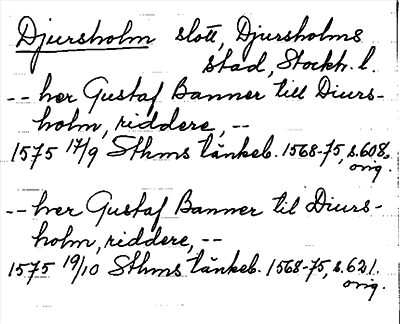 Djursholm slott, Djursholms
stad, Stockh. l.
-- her Gustaf Banner till Diurs-
holm, riddere, --
1575 17/9 Sthms tänkeb. 1568-75, s. 608.
orig.
-- her Gustaf Banner til Diurs-
holm, riddere, --
1575 19/10 Sthms tänkeb. 1568-75, s. 621.
orig.